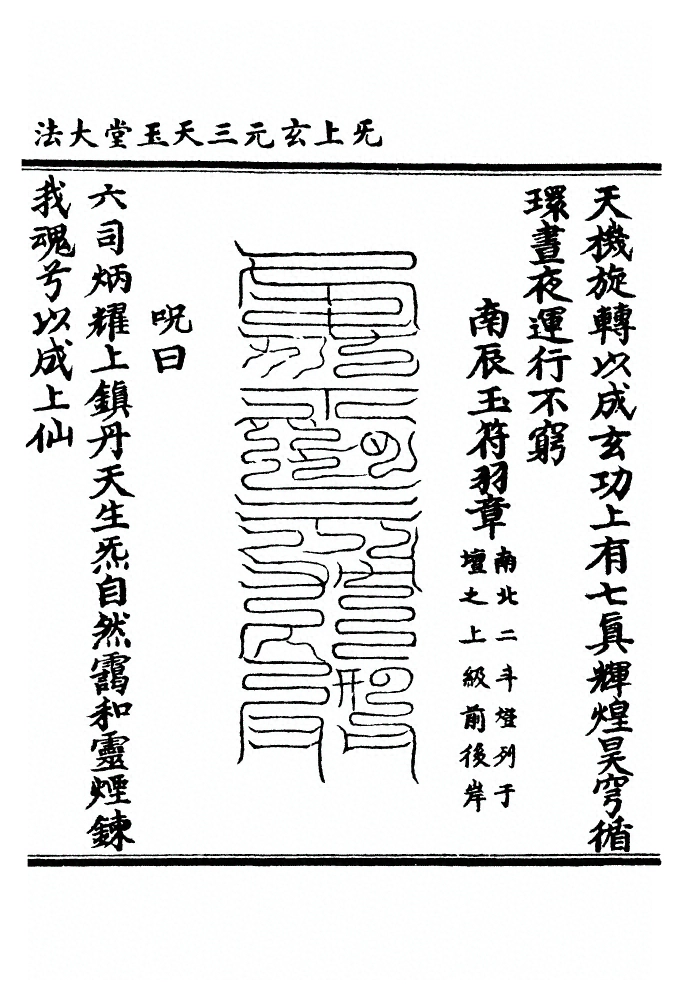 旡上玄元三天玉堂大法
天機旋轉以成玄功上有七眞輝煌昊穹循
環晝夜運行不窮
南辰玉符羽章
南北二斗燈列于
壇之上級前後岸
呪曰
六司炳耀上鎮丹天生炁自然靄和靈煙鍊
我魂兮以成上仙